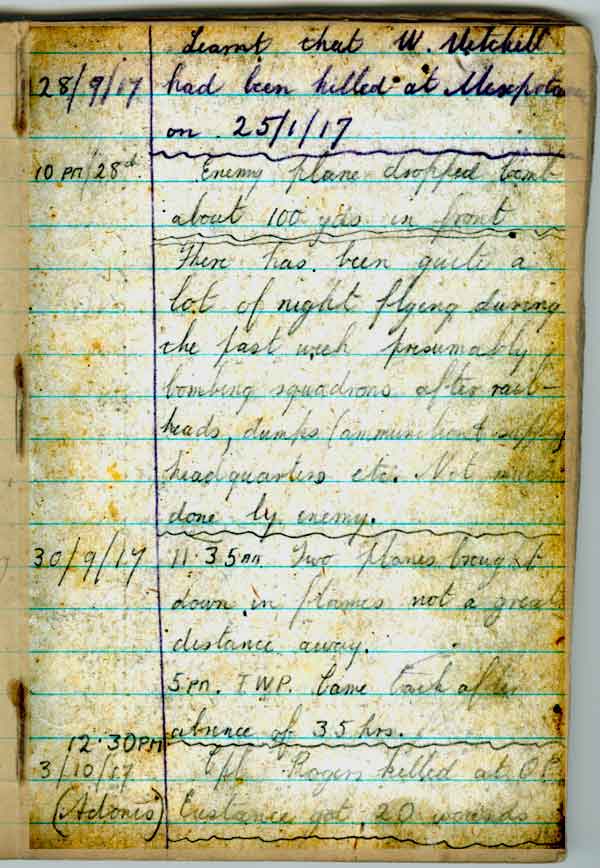 Learnt that W. Mitchell
28/9/17 had been killed at Mesepota
on 25/1/17
10 PM/28th. Enemy plane dropped bomb
about 100 yds in front.
There has been quite a
lot of night flying during
the past week presumably
bombing squadrons after rail-
heads, dumps (ammunition & supply
headquarters etc. Not much
done by enemy.
30/9/17 11.35 AM Two planes brought
down in flames not a great
distance away.
5 PM. T.W.P. Came back after
absence of 35 hrs.
12.30 PM
3/10/17 Cpl Rogers killed at O.P.
(Adonis) Eustance got 20 wounds